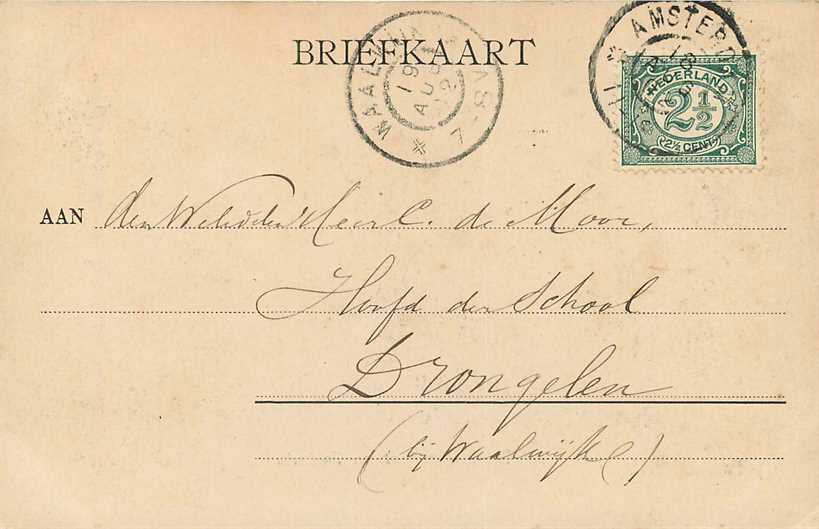 BRIEFKAART
WAALWIJK
19 AUG 02
7-8V
AMSTERD
18
NEDERLAND
2½
2½ CENT
AAN den WelEdelen Heer C. de Moor,
Hoofd der School
Drongelen
(bij Waalwijk)